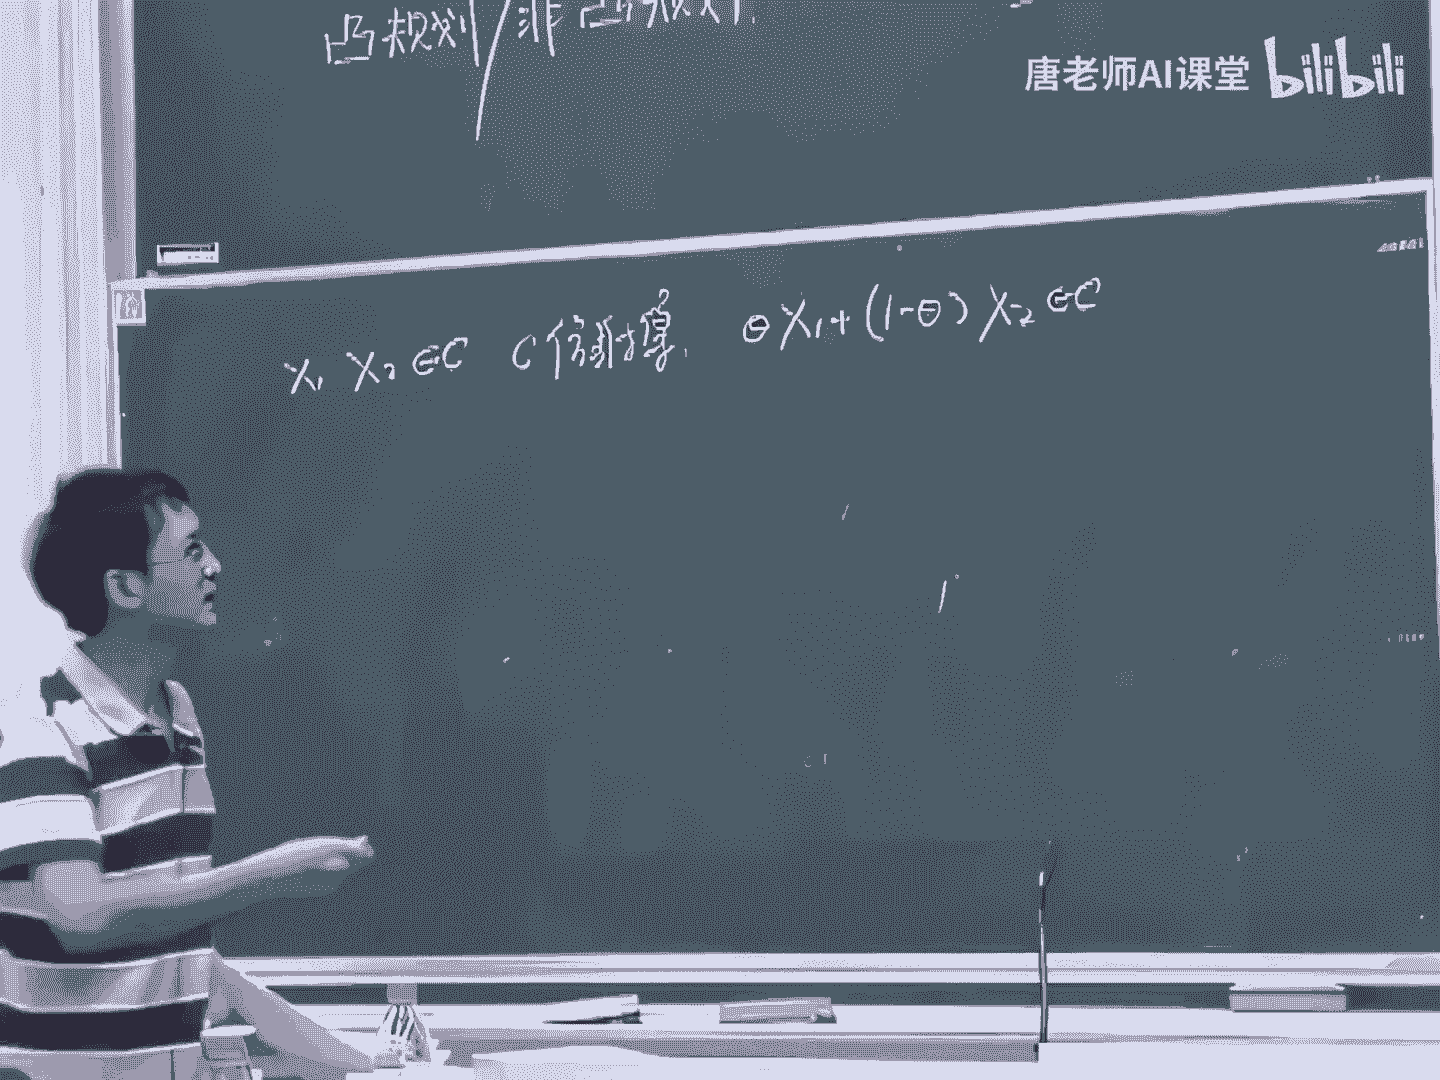 凸规划/非凸规划.
唐老师AI课堂 bilibili
X₁ X₂ ∈ C C仿射集, θX₁+(1-θ)X₂ ∈ C